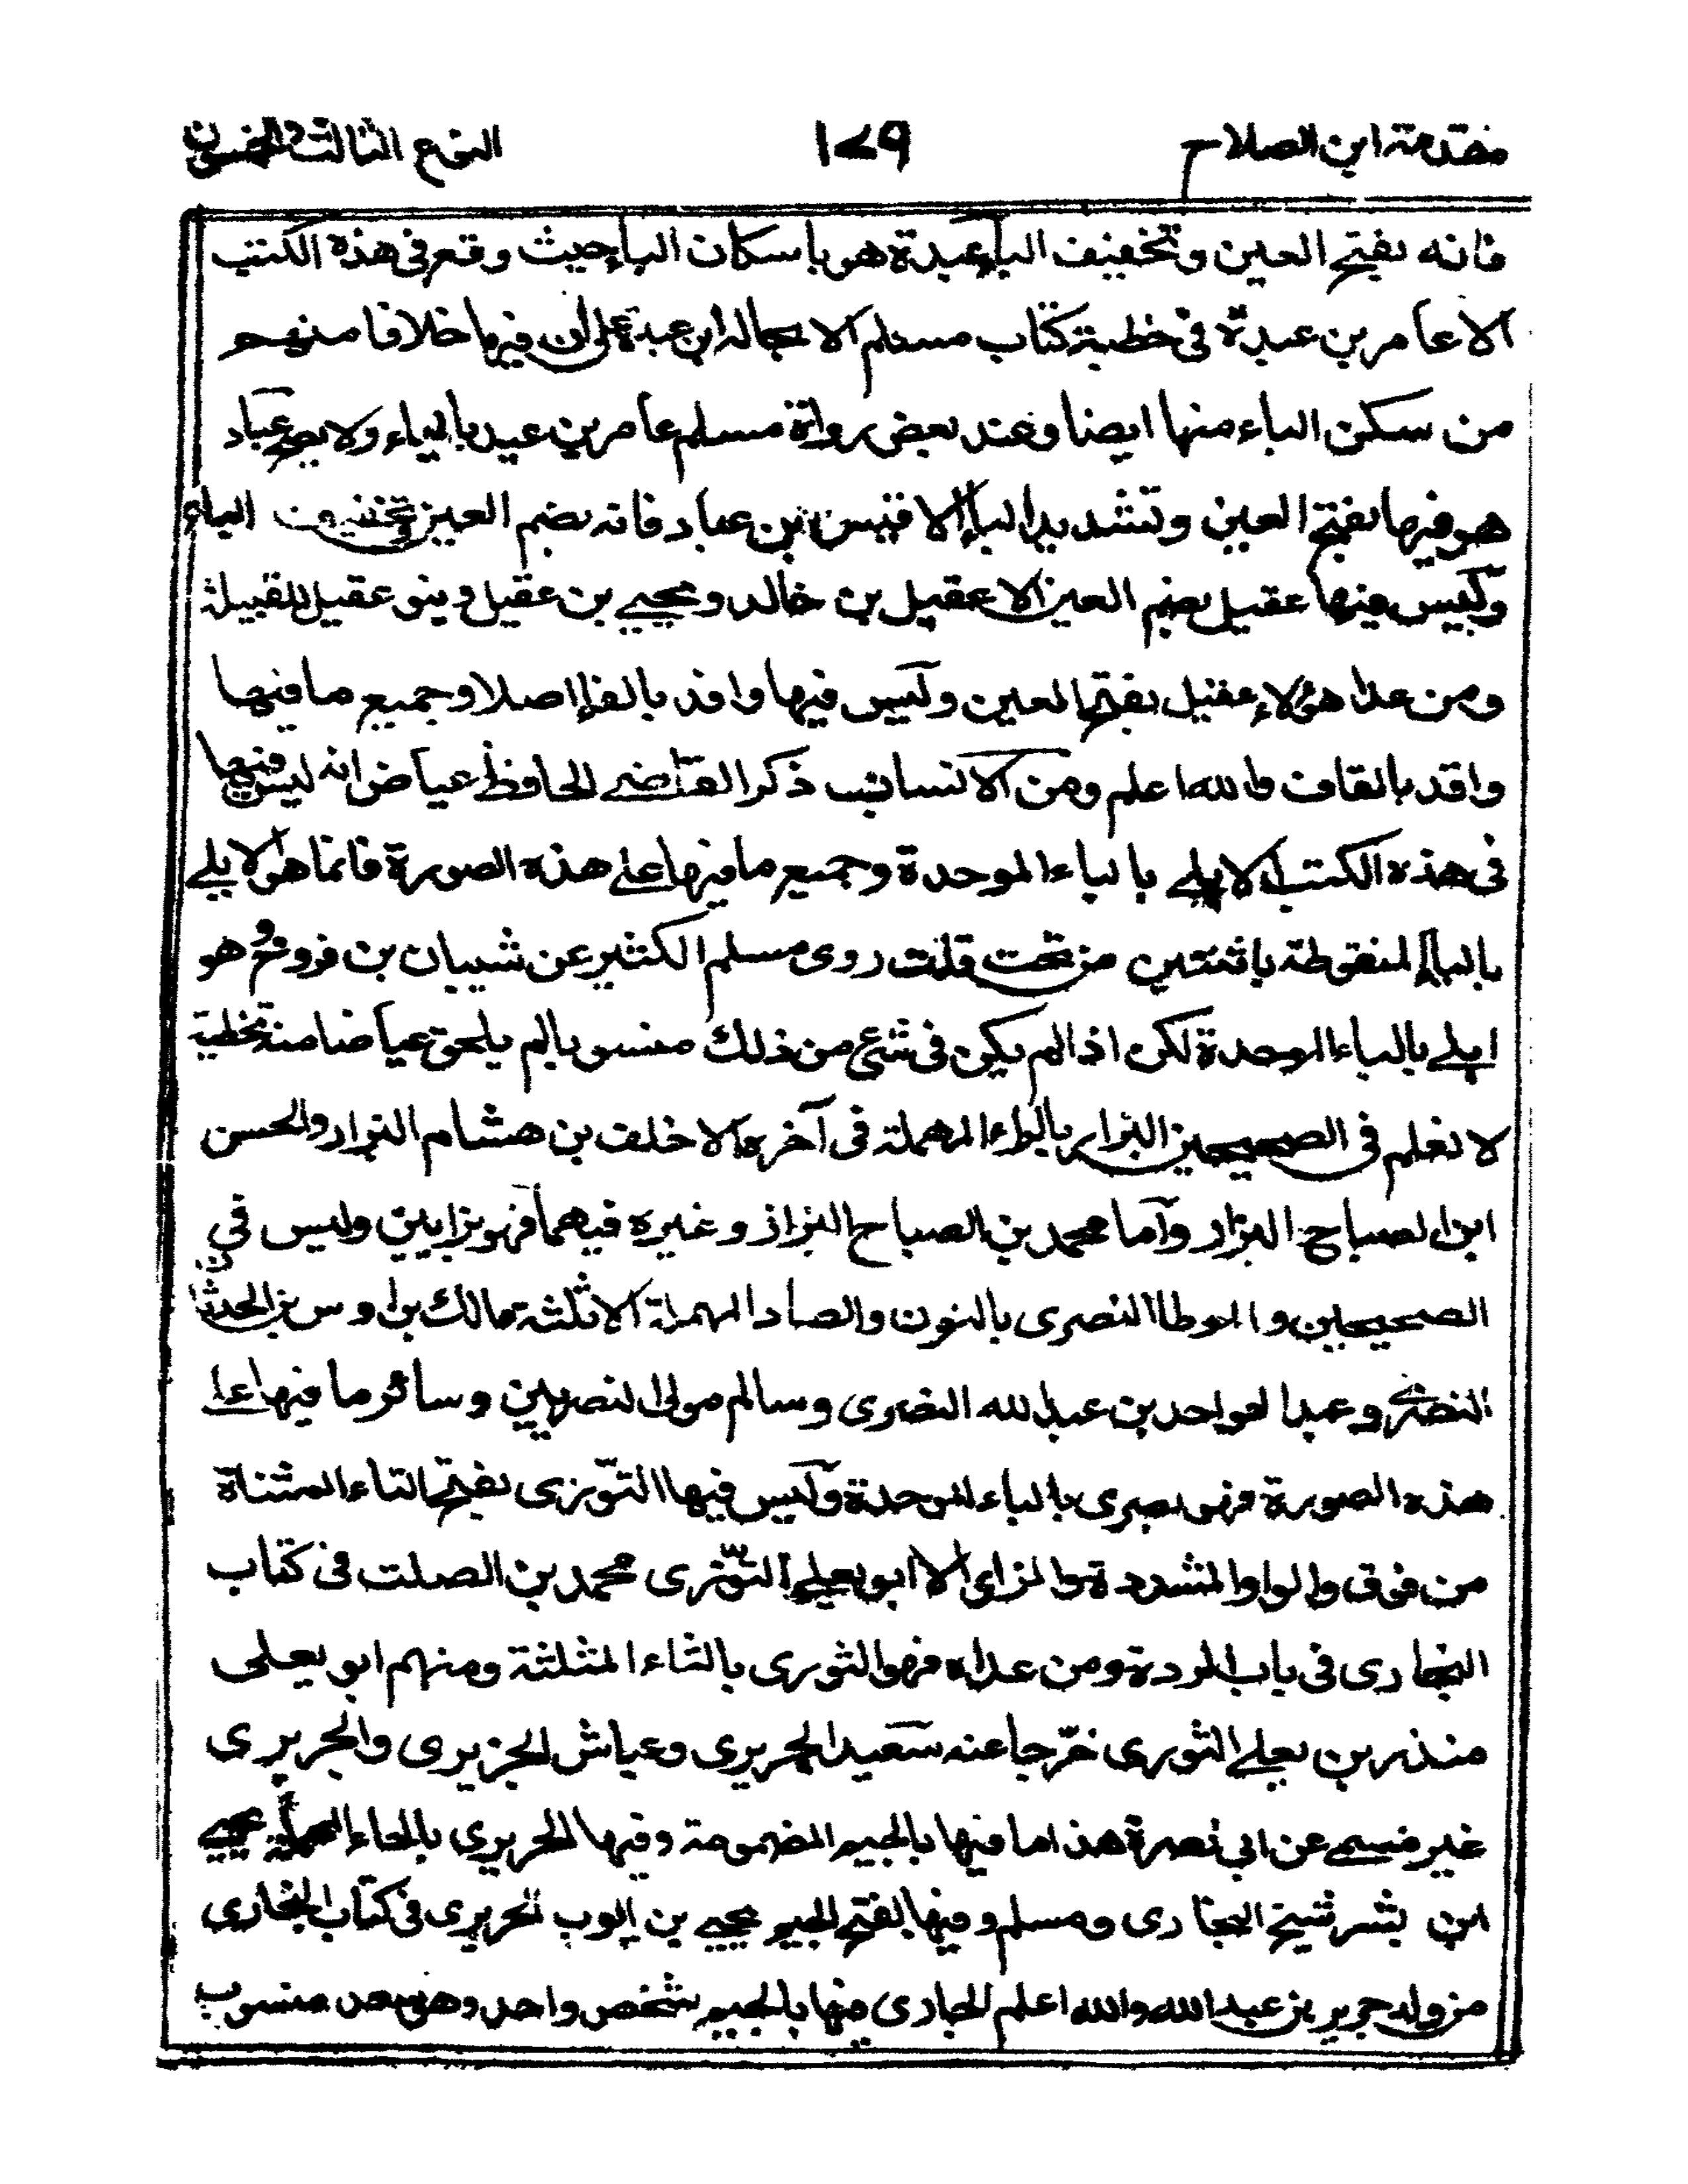 مقدمة ابن الصلاح ١٧٩ النوع الثالث والخمسون
فانه بفتح العين وتخفيف الباء عبدة هو باسكان الباء حيث وقع فى هذه الكتب
الا عامر بن عبدة فى خطبة كتاب مسلم والا بجالة ابن عبدة على ان فيهما خلافا منهم
من سكن الباء منهما ايضا وعند بعض رواة مسلم عامر بن عبد بالهاء ولا يصح عباد
هو فيها بفتح العين وتشديد الباء الا قيس بن عباد فانه بضم العين وتخفيف الباء
وليس فيها عقيل بضم العين الا عقيل بن خالد ويحيى بن عقيل وبنو عقيل للقبيلة
ومن عدا هؤلاء عقيل بفتح العين وليس فيها وافد بالفاء اصلا وجميع ما فيها
واقد بالقاف والله اعلم ومن الانساب ذكر القاضى الحافظ عياض انه ليس فيها
فى هذه الكتب الابلى بالباء الموحدة وجميع ما فيها على هذه الصورة فانما هو الايلى
بالياء المنقوطة باثنتين من تحت قلت روى مسلم الكثير عن شيبان بن فروخ وهو
ابلى بالباء الموحدة لكن اذا لم يكن فى شئ من ذلك منسوبا لم يلحق عياضا منه تخطية
لا نعلم فى الصحيحين البزار بالراء المهملة فى آخره الا خلف بن هشام البزار والحسن
ابن الصباح البزار وآما محمد بن الصباح البزاز وغيره فيهما فهو بزايين وليس في
الصحيحين والموطا النصرى بالنون والصاد المهملة الا ثلثة مالك بن اوس بن الحدثان
النصرى وعبد الواحد بن عبد الله النصرى وسالم مولى النصريين وسائر ما فيها على
هذه الصورة فهو بصرى بالباء الموحدة وليس فيها التوّزى بفتح التاء المثناة
من فوق والواو المشددة والزاى الا ابو يعلى التوّزى محمد بن الصلت فى كتاب
البخارى فى باب الردة ومن عداه فهو الثورى بالثاء المثلثة ومنهم ابو يعلى
منذر بن يعلى الثورى خرّجا عنه سعيد الجريرى وعباس الجريرى والجريرى
غير مسمى عن ابي نضرة هذا ما فيها بالجيم المضمومة وفيها الحريرى بالحاء المهملة يحيى
ابن بشر شيخ البخارى ومسلم وفيها بفتح الجيم يحيى بن ايوب الجريرى فى كتاب البخارى
من ولد جرير بن عبد الله والله اعلم الجارى فيها بالجيم شخص واحد وهو سعد منسوب